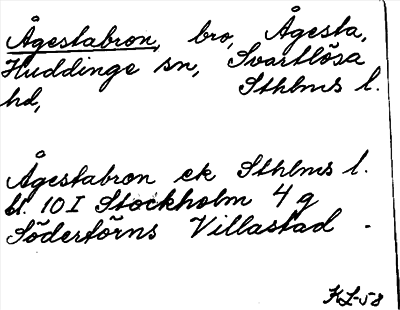 Ågestabron, bro, Ågesta,
Huddinge sn, Svartlösa
hd, Sthlms l.
Ågestabron ek Sthlms l.
bl. 10 I Stockholm 4 g
Södertörns Villastad -
KL-58